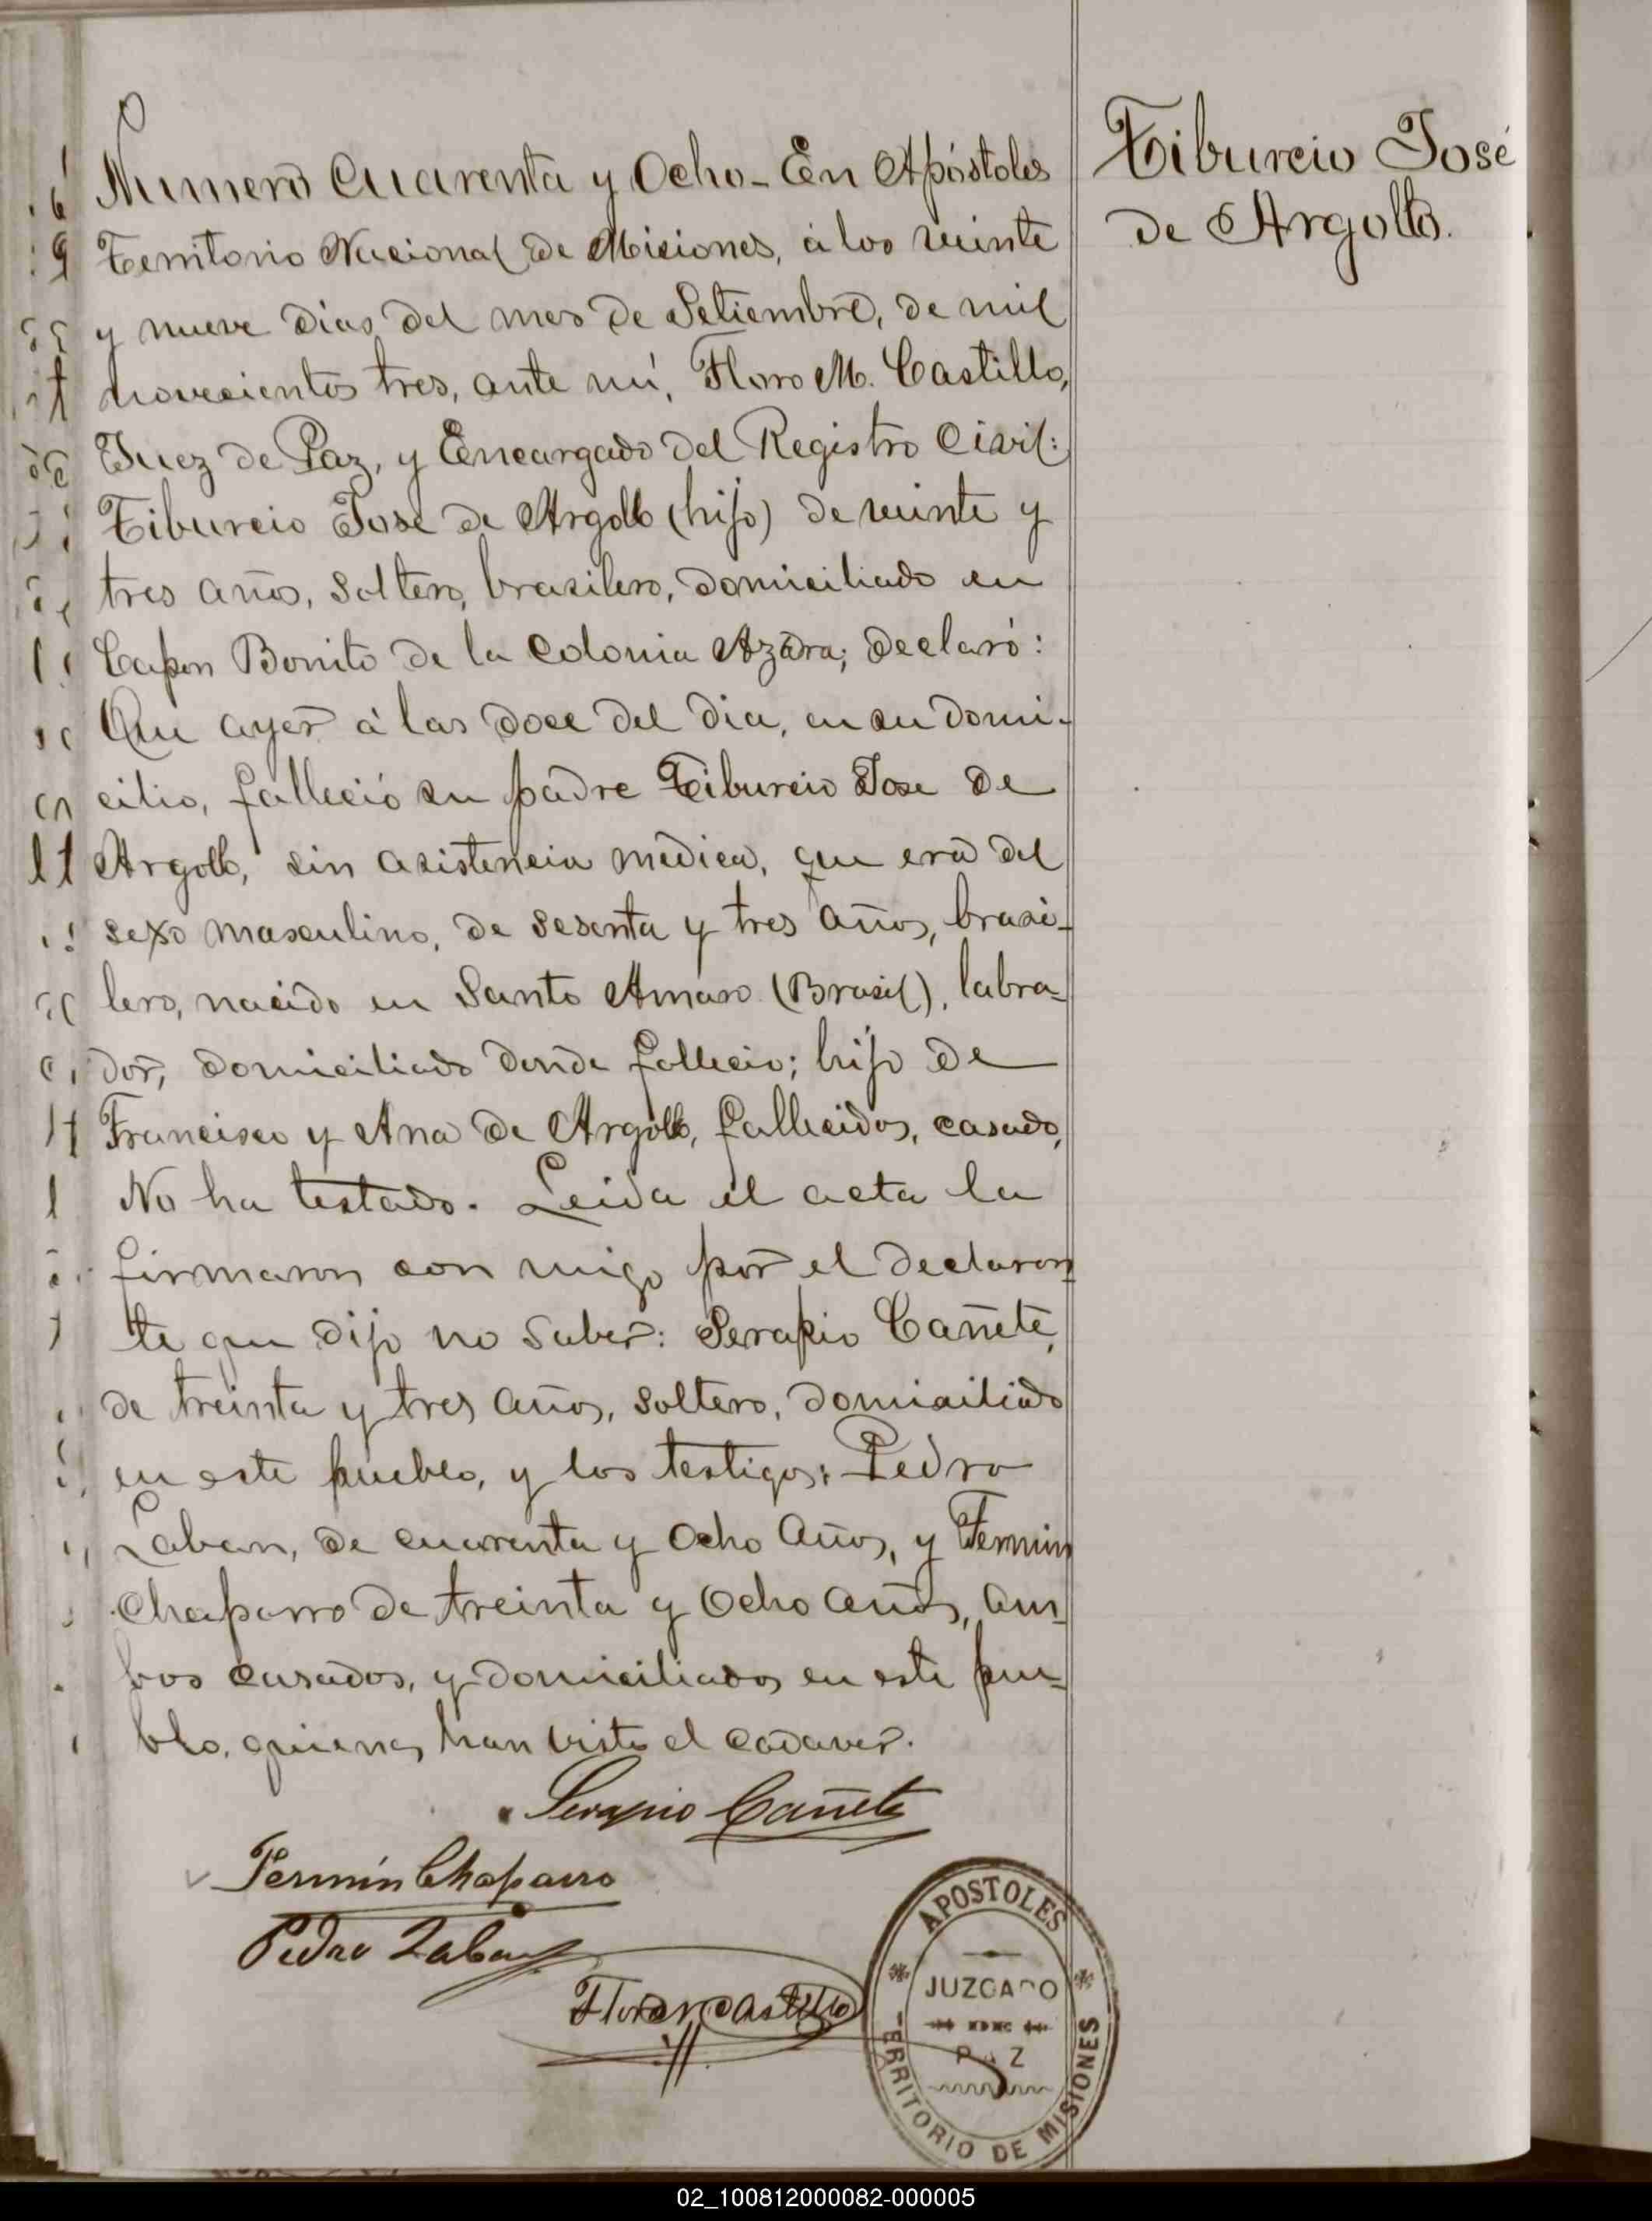 Numero Cuarenta y Ocho - En Apóstoles
Territorio Nacional de Misiones, á los veinte
y nueve dias del mes de Setiembre, de mil
novecientos tres, ante mi, Floro M. Castillo,
Juez de Paz, y Encargado del Registro Civil:
Tiburcio José de Argollo (hijo) de veinte y
tres años, soltero, brasilero, domiciliado en
Capon Bonito de la Colonia Azara; declaró:
Que ayer á las doce del dia, en su domi-
cilio, falleció su padre Tiburcio Jose de
Argollo, sin asistencia médica, que era del
sexo masculino, de sesenta y tres años, brasi-
lero, nacido en Santo Amaro (Brasil), labra-
dor, domiciliado donde fallecio; hijo de
Francisco y Ana de Argollo, fallecidos, casado,
No ha testado. Leida el acta la
firmaron con migo por el declaran-
te que dijo no saber: Serapio Cañete,
de treinta y tres años, soltero, domiciliado
en este pueblo, y los testigos: Pedro
Laban, de cuarenta y ocho años, y Fermin
Chaparro de treinta y ocho años, am-
bos casados, y domiciliados en este pue-
blo, quienes han visto el cadaver.
Serapio Cañete
Fermín Chaparro
Pedro Laban
Floro M Castillo
APOSTOLES
JUZGADO
PAZ
TERRITORIO DE MISIONES
Tiburcio José
de Argollo.
02_100812000082-000005